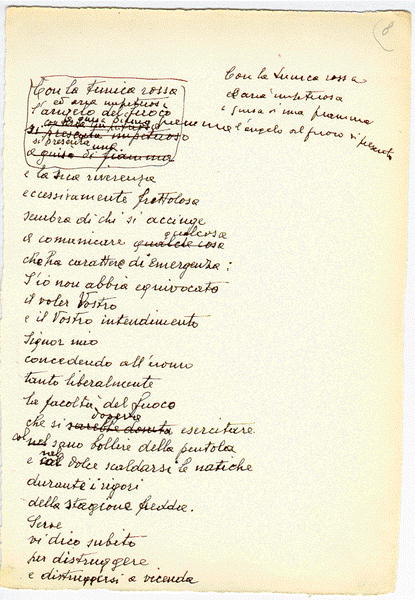 8
Con la tunica rossa
ed aria impetuosa
l'angelo del fuoco
si presenta impetuoso
si presenta
a guisa di fiamma
Con la tunica rossa
ed aria impetuosa
a guisa di una fiamma
l'angelo del fuoco si presenta
e la sua riverenza
eccessivamente frettolosa
sembra di chi si accinge
a comunicare qualche cosa
qualcosa
che ha carattere di emergenza:
S'io non abbia equivocato
il voler Vostro
e il Vostro intendimento
Signor mio
concedendo all'uomo
tanto liberalmente
la facoltà del fuoco
doveva
che si sarebbe dovuta esercitare
col nel sano bollire della pentola
nel
e dolce scaldarsi le natiche
durante i rigori
della stagione fredda.
Serve
vi dico subito
per distruggere
e distruggersi a vicenda